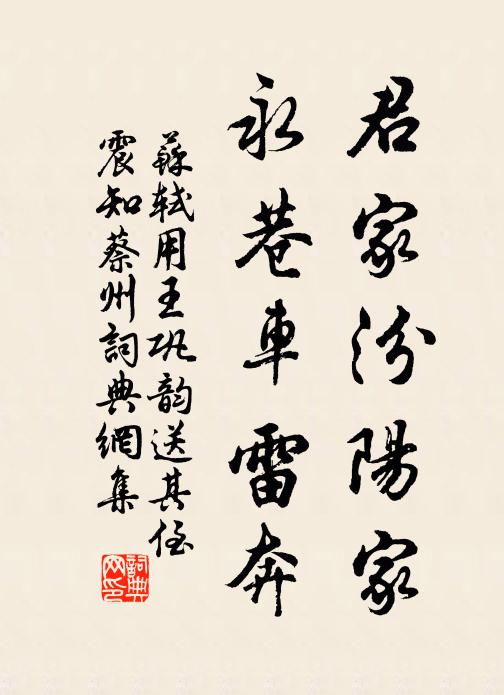 君家汾陽家
永巷車雷奔
蘇軾用王巩韵送其侄
震知蔡州詞典網集
詞典
网印